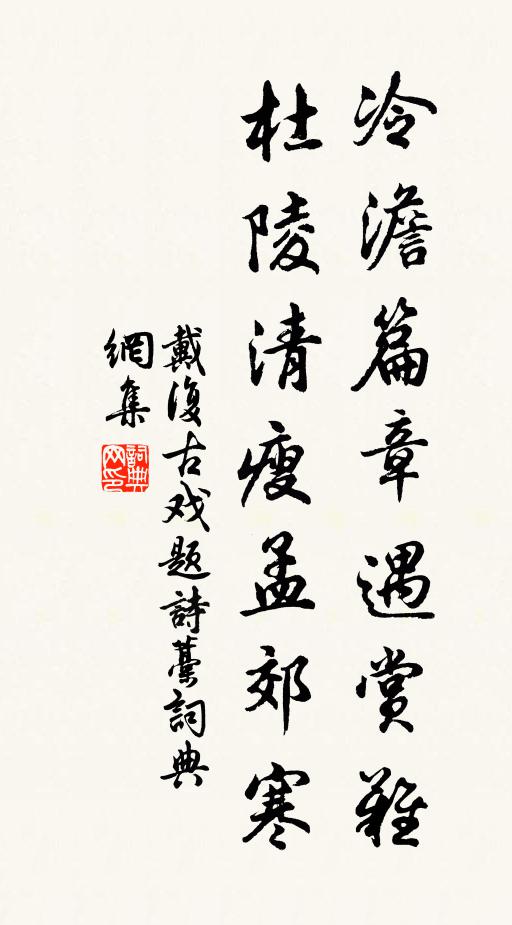 冷澹篇章遇赏難
杜陵清瘦孟郊寒
戴復古戏题詩藁詞典
網集
詞典
网印